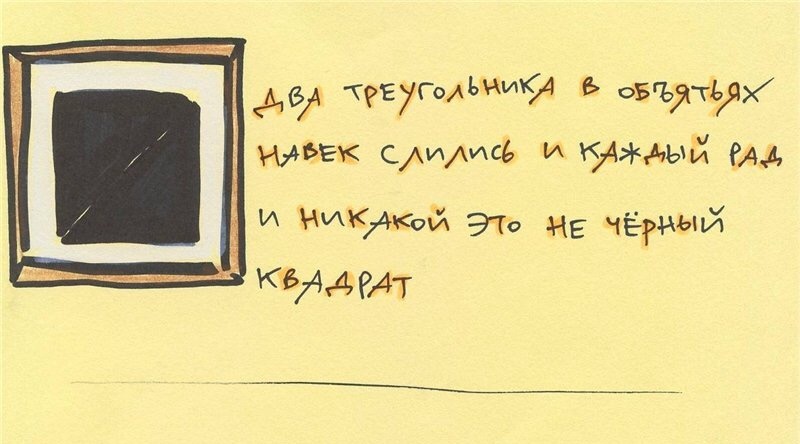 ДВА ТРЕУГОЛЬНИКА В ОБЪЯТЬЯХ
НАВЕК СЛИЛИСЬ И КАЖДЫЙ РАД
И НИКАКОЙ ЭТО НЕ ЧЁРНЫЙ
КВАДРАТ